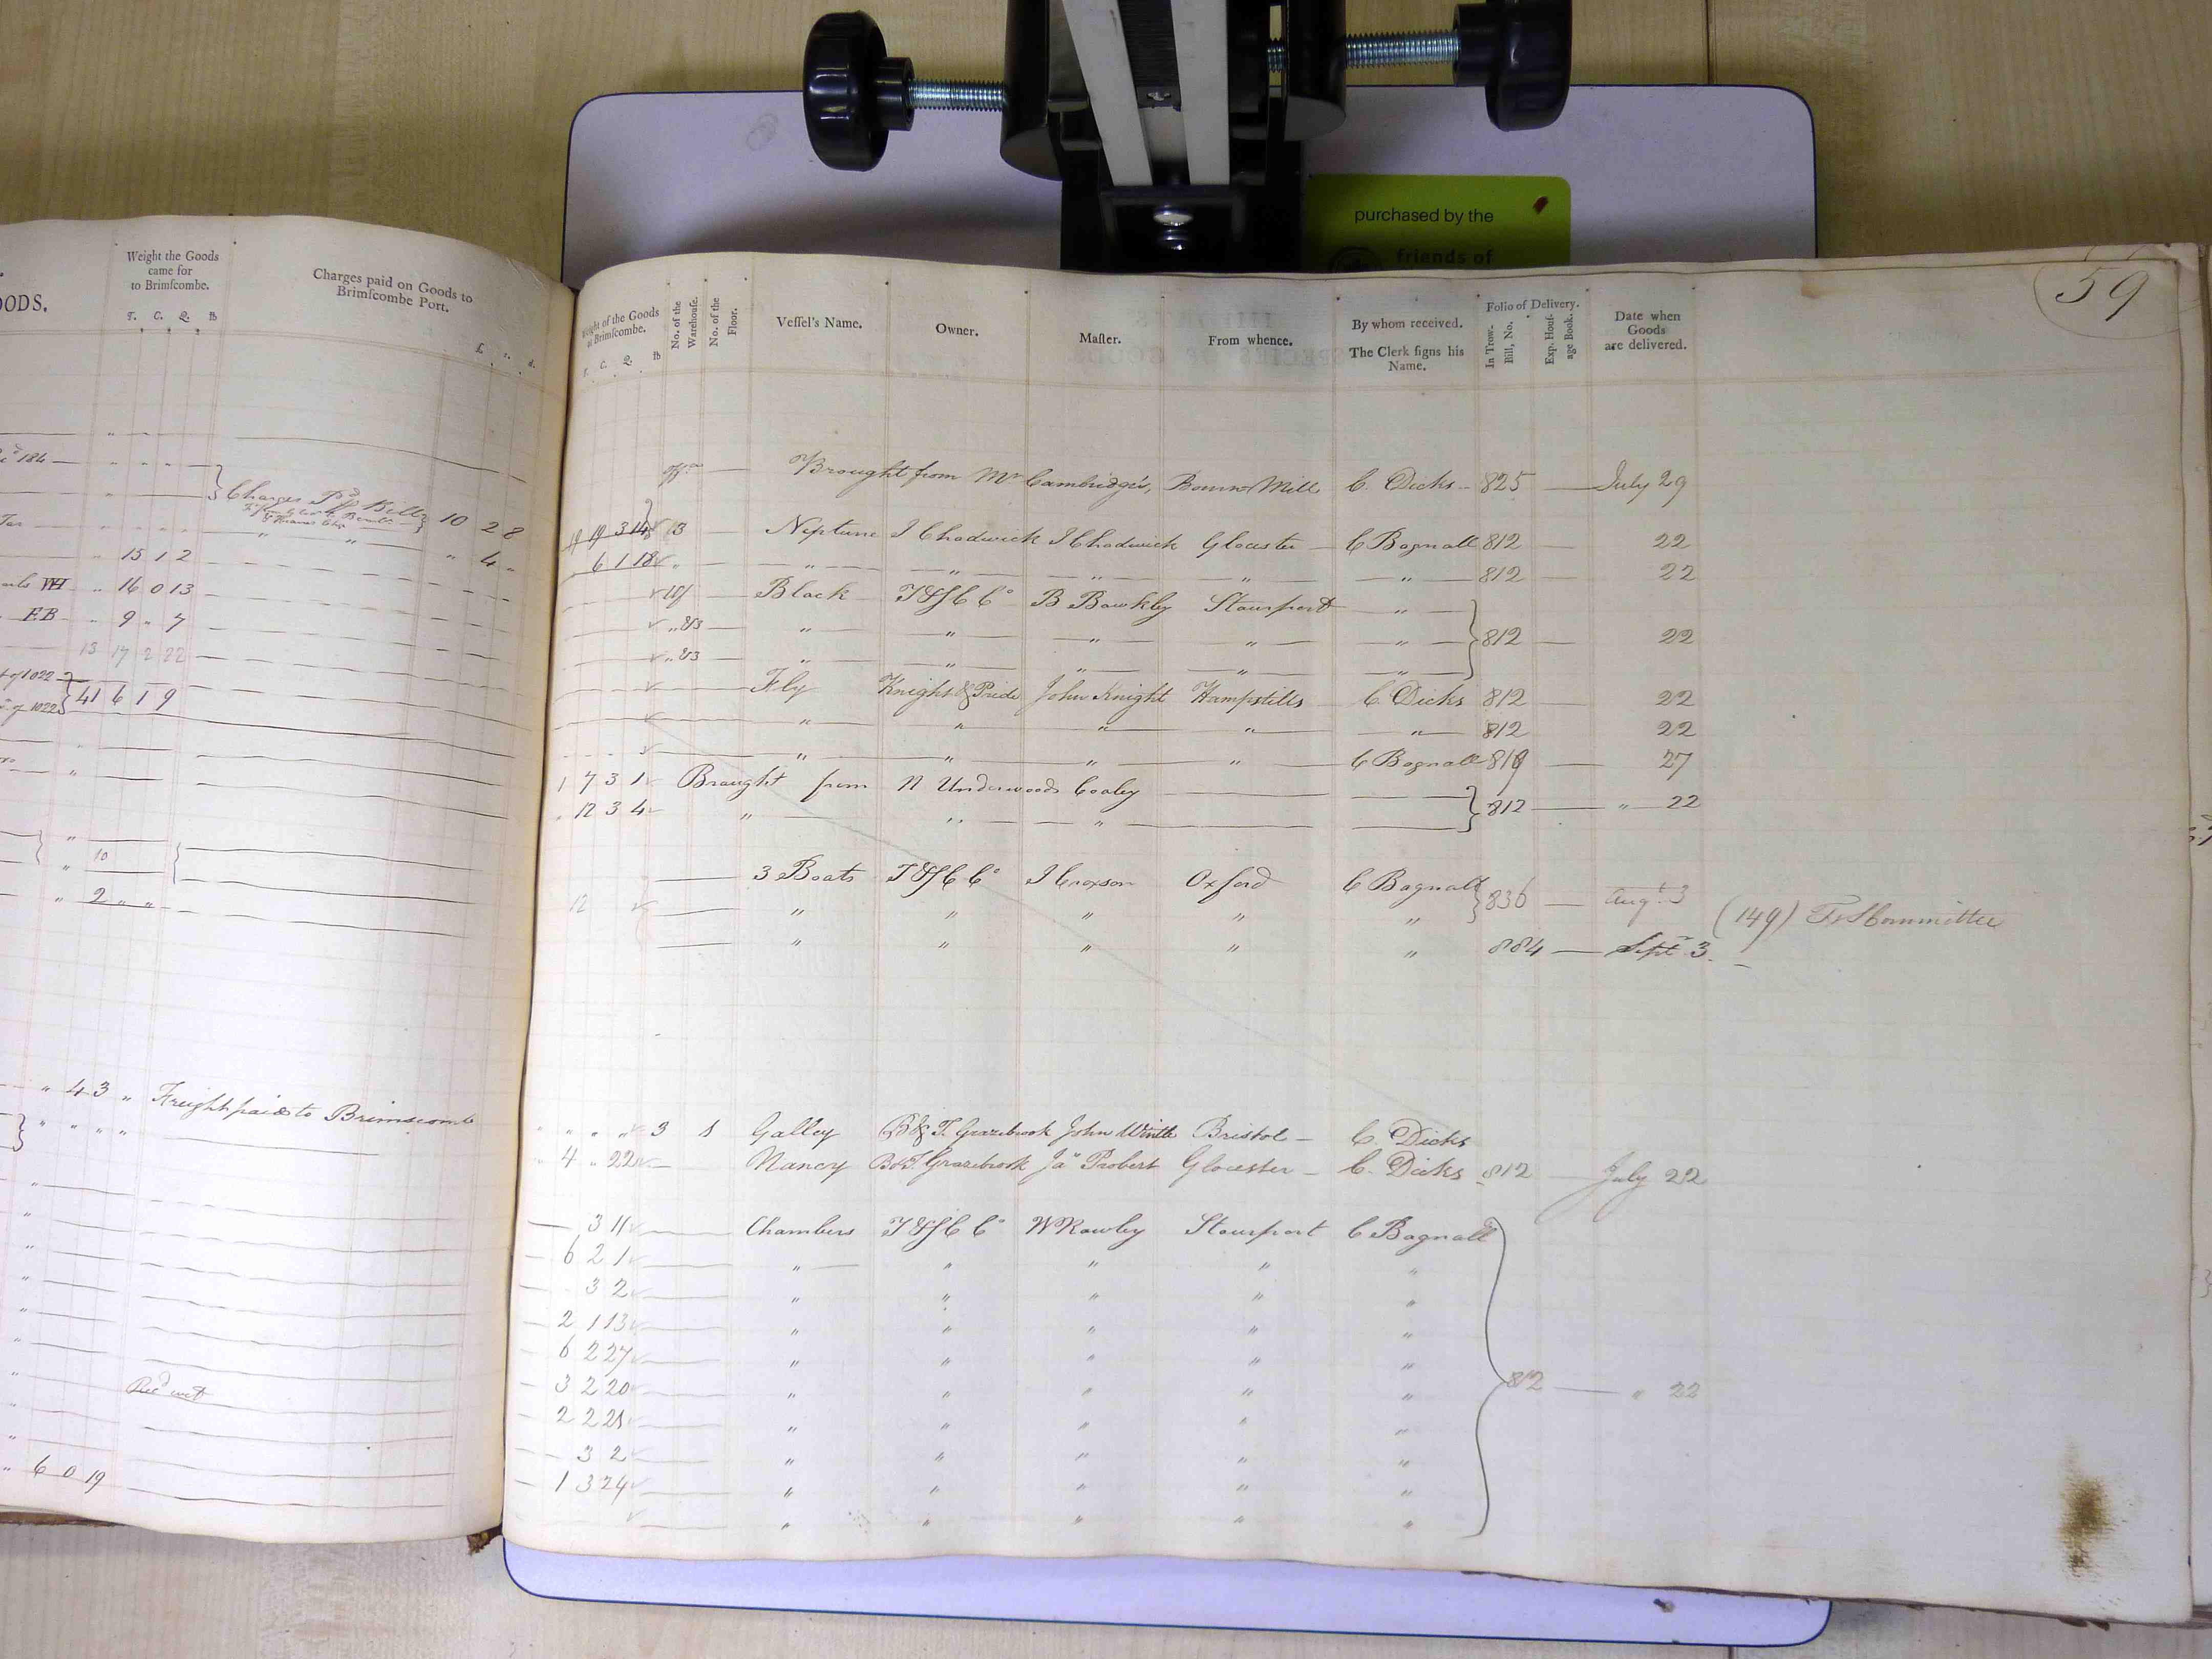 purchased by the
friends of
OODS.
Weight the Goods
came for
to Brimſcombe.
T. C. Q. lb
Charges paid on Goods to
Brimſcombe Port.
£. s. d.
184
Charges Pd Bill 10 2 8
" " " 4 "
" 15 1 2
" 16 0 13
EB " 9 " 7
13 17 2 22
of 1022
of 1022 } 41 6 1 9
10
" 2 " "
" 4 3 " Freight paid to Brimscomb
" " " "
Recd wet
" 6 0 19
59
Weight of the Goods
at Brimſcombe.
T. C. Q. lb
No. of the
Warehouſe.
No. of the
Floor.
Veſſel's Name.
Owner.
Maſter.
From whence.
By whom received.
The Clerk ſigns his
Name.
Folio of Delivery.
In Trow-
Bill, No.
Exp. Houſ-
age Book.
Date when
Goods
are delivered.
Brought from Mr Cambridge's, Bourn Mill C. Dicks 825 July 29
19 19 3 14 13 Neptune J Chadwick J Chadwick Glocester C Bagnall 812 22
6 1 18 " " " " " " 812 22
Black T&SC Co B Bawkley Stourport "
" " " " " } 812 22
" " " " "
Fly Knight & Pride John Knight Hampstills C. Dicks 812 22
" " " " " 812 22
" " " " C Bagnall 819 27
1 7 3 1 Brought from N Underwoods Coaley
" 12 3 4 " " " } 812 " 22
3 Boats T&SC Co J Croxson Oxford C Bagnall
12 " " " " " } 836 Augt 3
(149) T&S Committee
" " " " " 884 Sept 3
" " " " 3 1 Galley B&T. Grazebrook John Wintle Bristol C. Dicks
4 " 22 Nancy B&T. Grazebrook Jas Probert Glocester C. Dicks 812 July 22
3 11 Chambers T&SC Co W Rowley Stourport C Bagnall
6 2 1 " " " " "
3 2 " " " " "
2 1 13 " " " " "
6 2 27 " " " " "
3 2 20 " " " " " 812 " 22
2 2 21 " " " " "
3 2 " " " " "
1 3 24 " " " " "
" " " " "